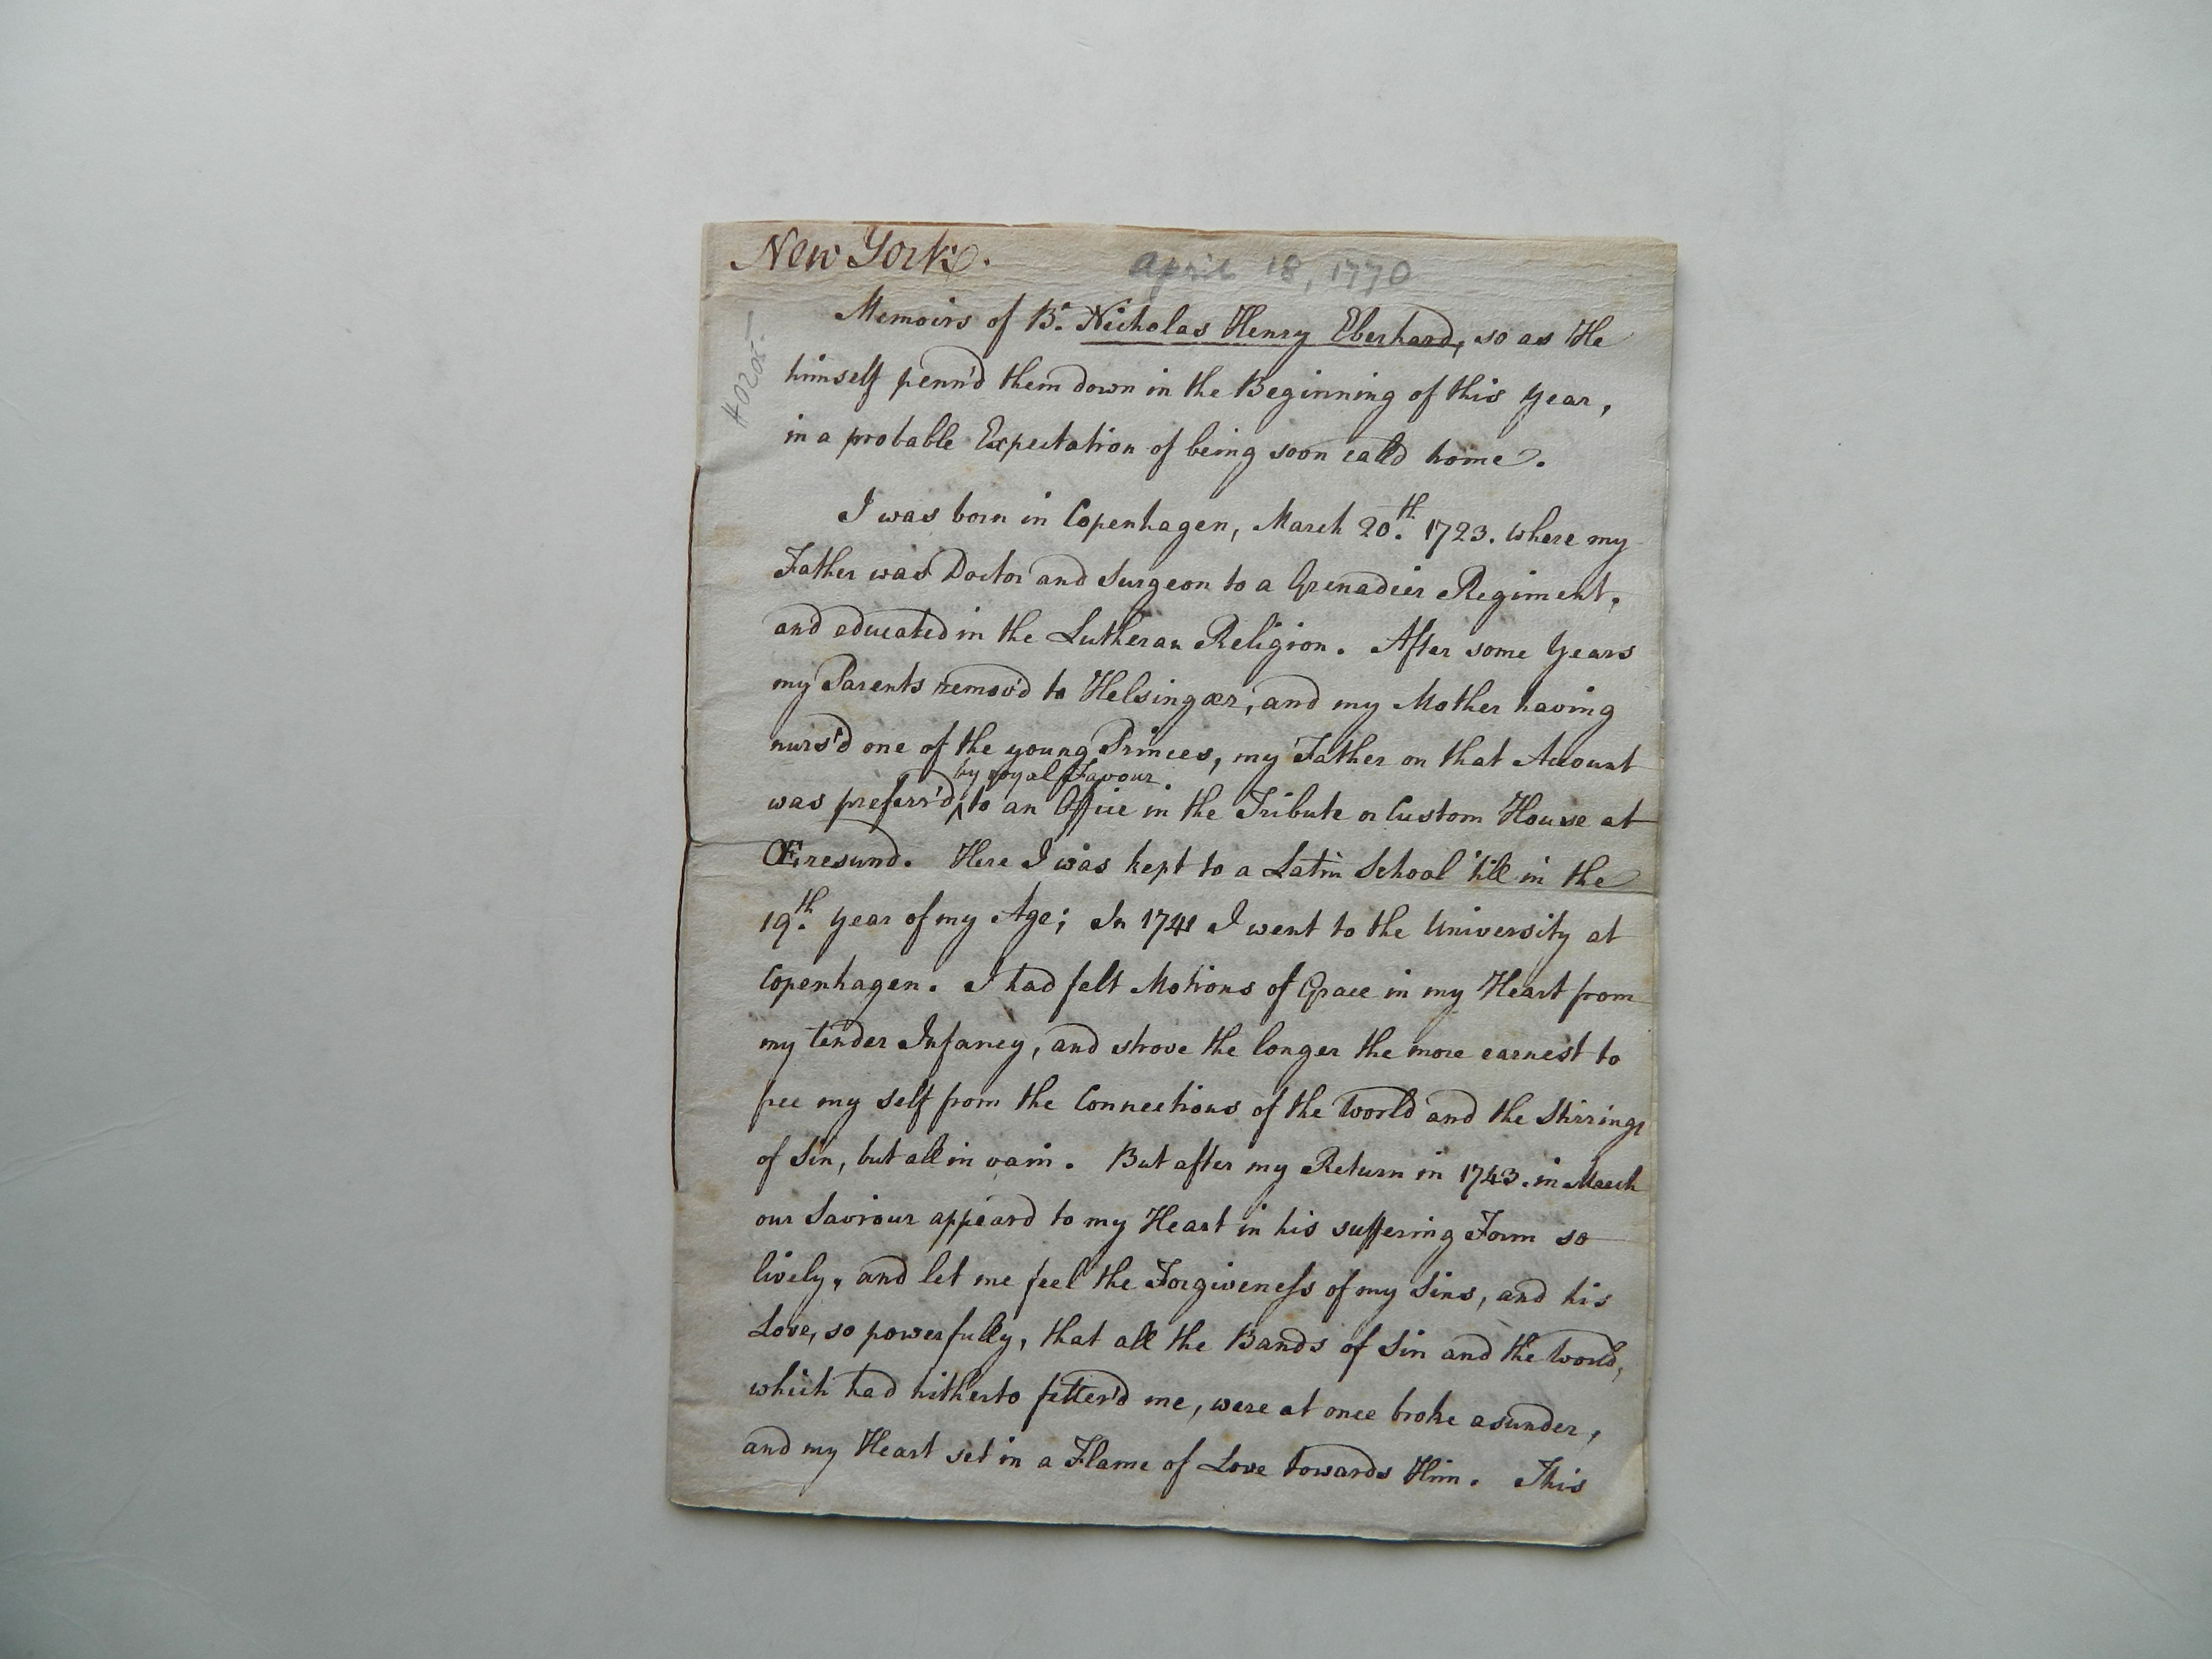 New York.
April 18, 1770
Memoirs of Br. Nicholas Henry Eberhard, so as He
himself penn'd them down in the Beginning of this Year,
in a probable Expectation of being soon call'd home.
I was born in Copenhagen, March 20th. 1723. where my
Father was Doctor and Surgeon to a Grenadier Regiment,
and educated in the Lutheran Religion. After some Years
my Parents remov'd to Helsingœr, and my Mother having
nurs'd one of the young Princes, my Father on that Account
by royal Favour
was preferr'd ^ to an Office in the Tribute or Custom House at
Œresund. Here I was kept to a Latin School 'till in the
19th. Year of my Age; In 1741 I went to the University at
Copenhagen. I had felt Motions of Grace in my Heart from
my tender Infancy, and strove the longer the more earnest to
free my self from the Connections of the World and the Stirrings
of Sin, but all in vain. But after my Return in 1743. in March
our Saviour appeard to my Heart in his suffering Form so
lively, and let me feel the Forgiveness of my Sins, and his
Love, so powerfully, that all the Bands of Sin and the World,
which had hitherto fetter'd me, were at once broke asunder,
and my Heart set in a Flame of Love towards Him. This